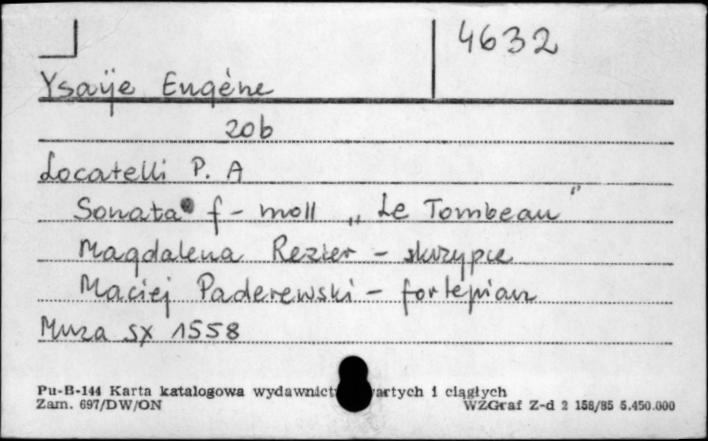 4632
Ysaÿe Eugène
20b
Locatelli P. A
Sonata f-moll „Le Tombeau"
Magdalena Rezler - skrzypce
Maciej Paderewski - fortepian
Muza SX 1558
Pu-B-144 Karta katalogowa wydawnict artych i ciągłych
Zam. 697/DW/ON WZGraf Z-d 2 158/85 5.450.000